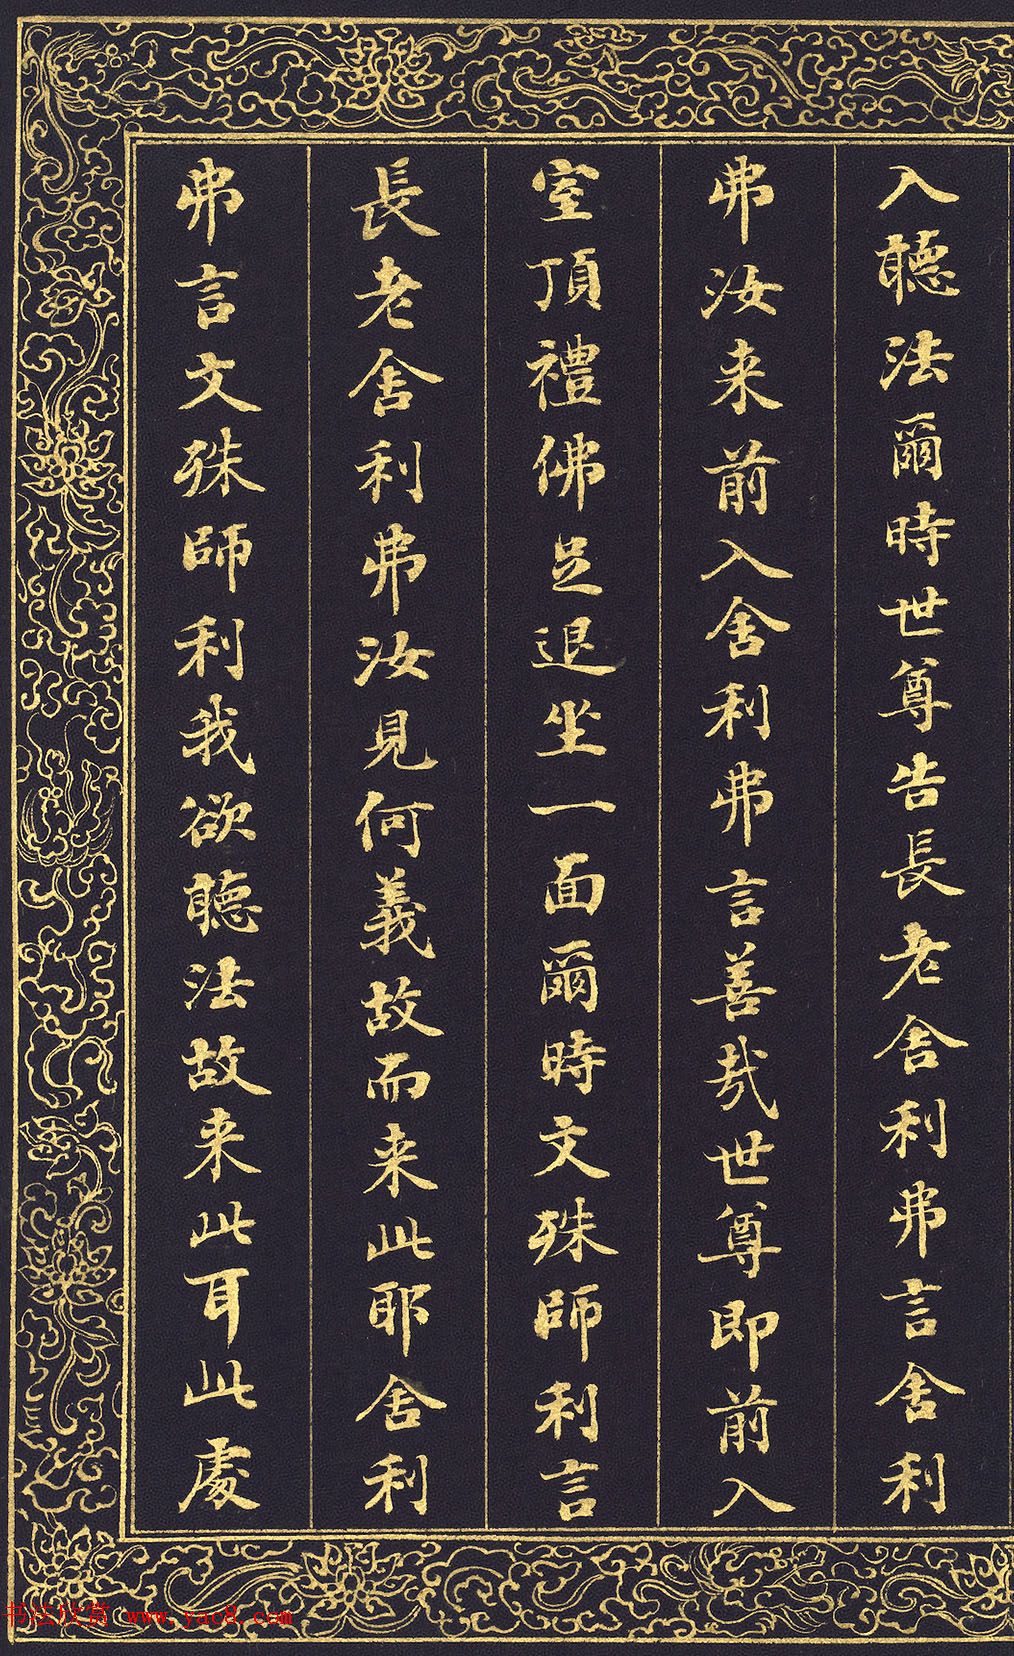 入聽法爾時世尊告長老舍利弗言舍利
弗汝来前入舍利弗言善哉世尊即前入
室頂禮佛足退坐一面爾時文殊師利言
長老舍利弗汝見何義故而来此耶舍利
弗言文殊師利我欲聽法故来此耳此處
书法欣赏 www.yac8.com